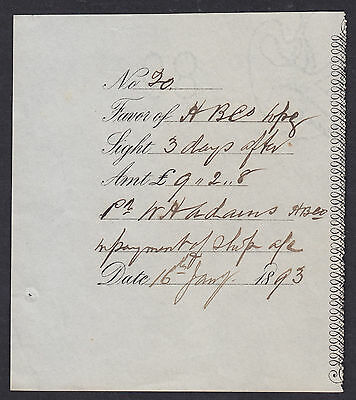 No 30.
Favor of H B Co Wpg
Sight 3 days after
Amt £ 9 " 2 " 8
Pr W H Adams H B Co
In payment of Ship a/c
Date 16th Jany. 1893